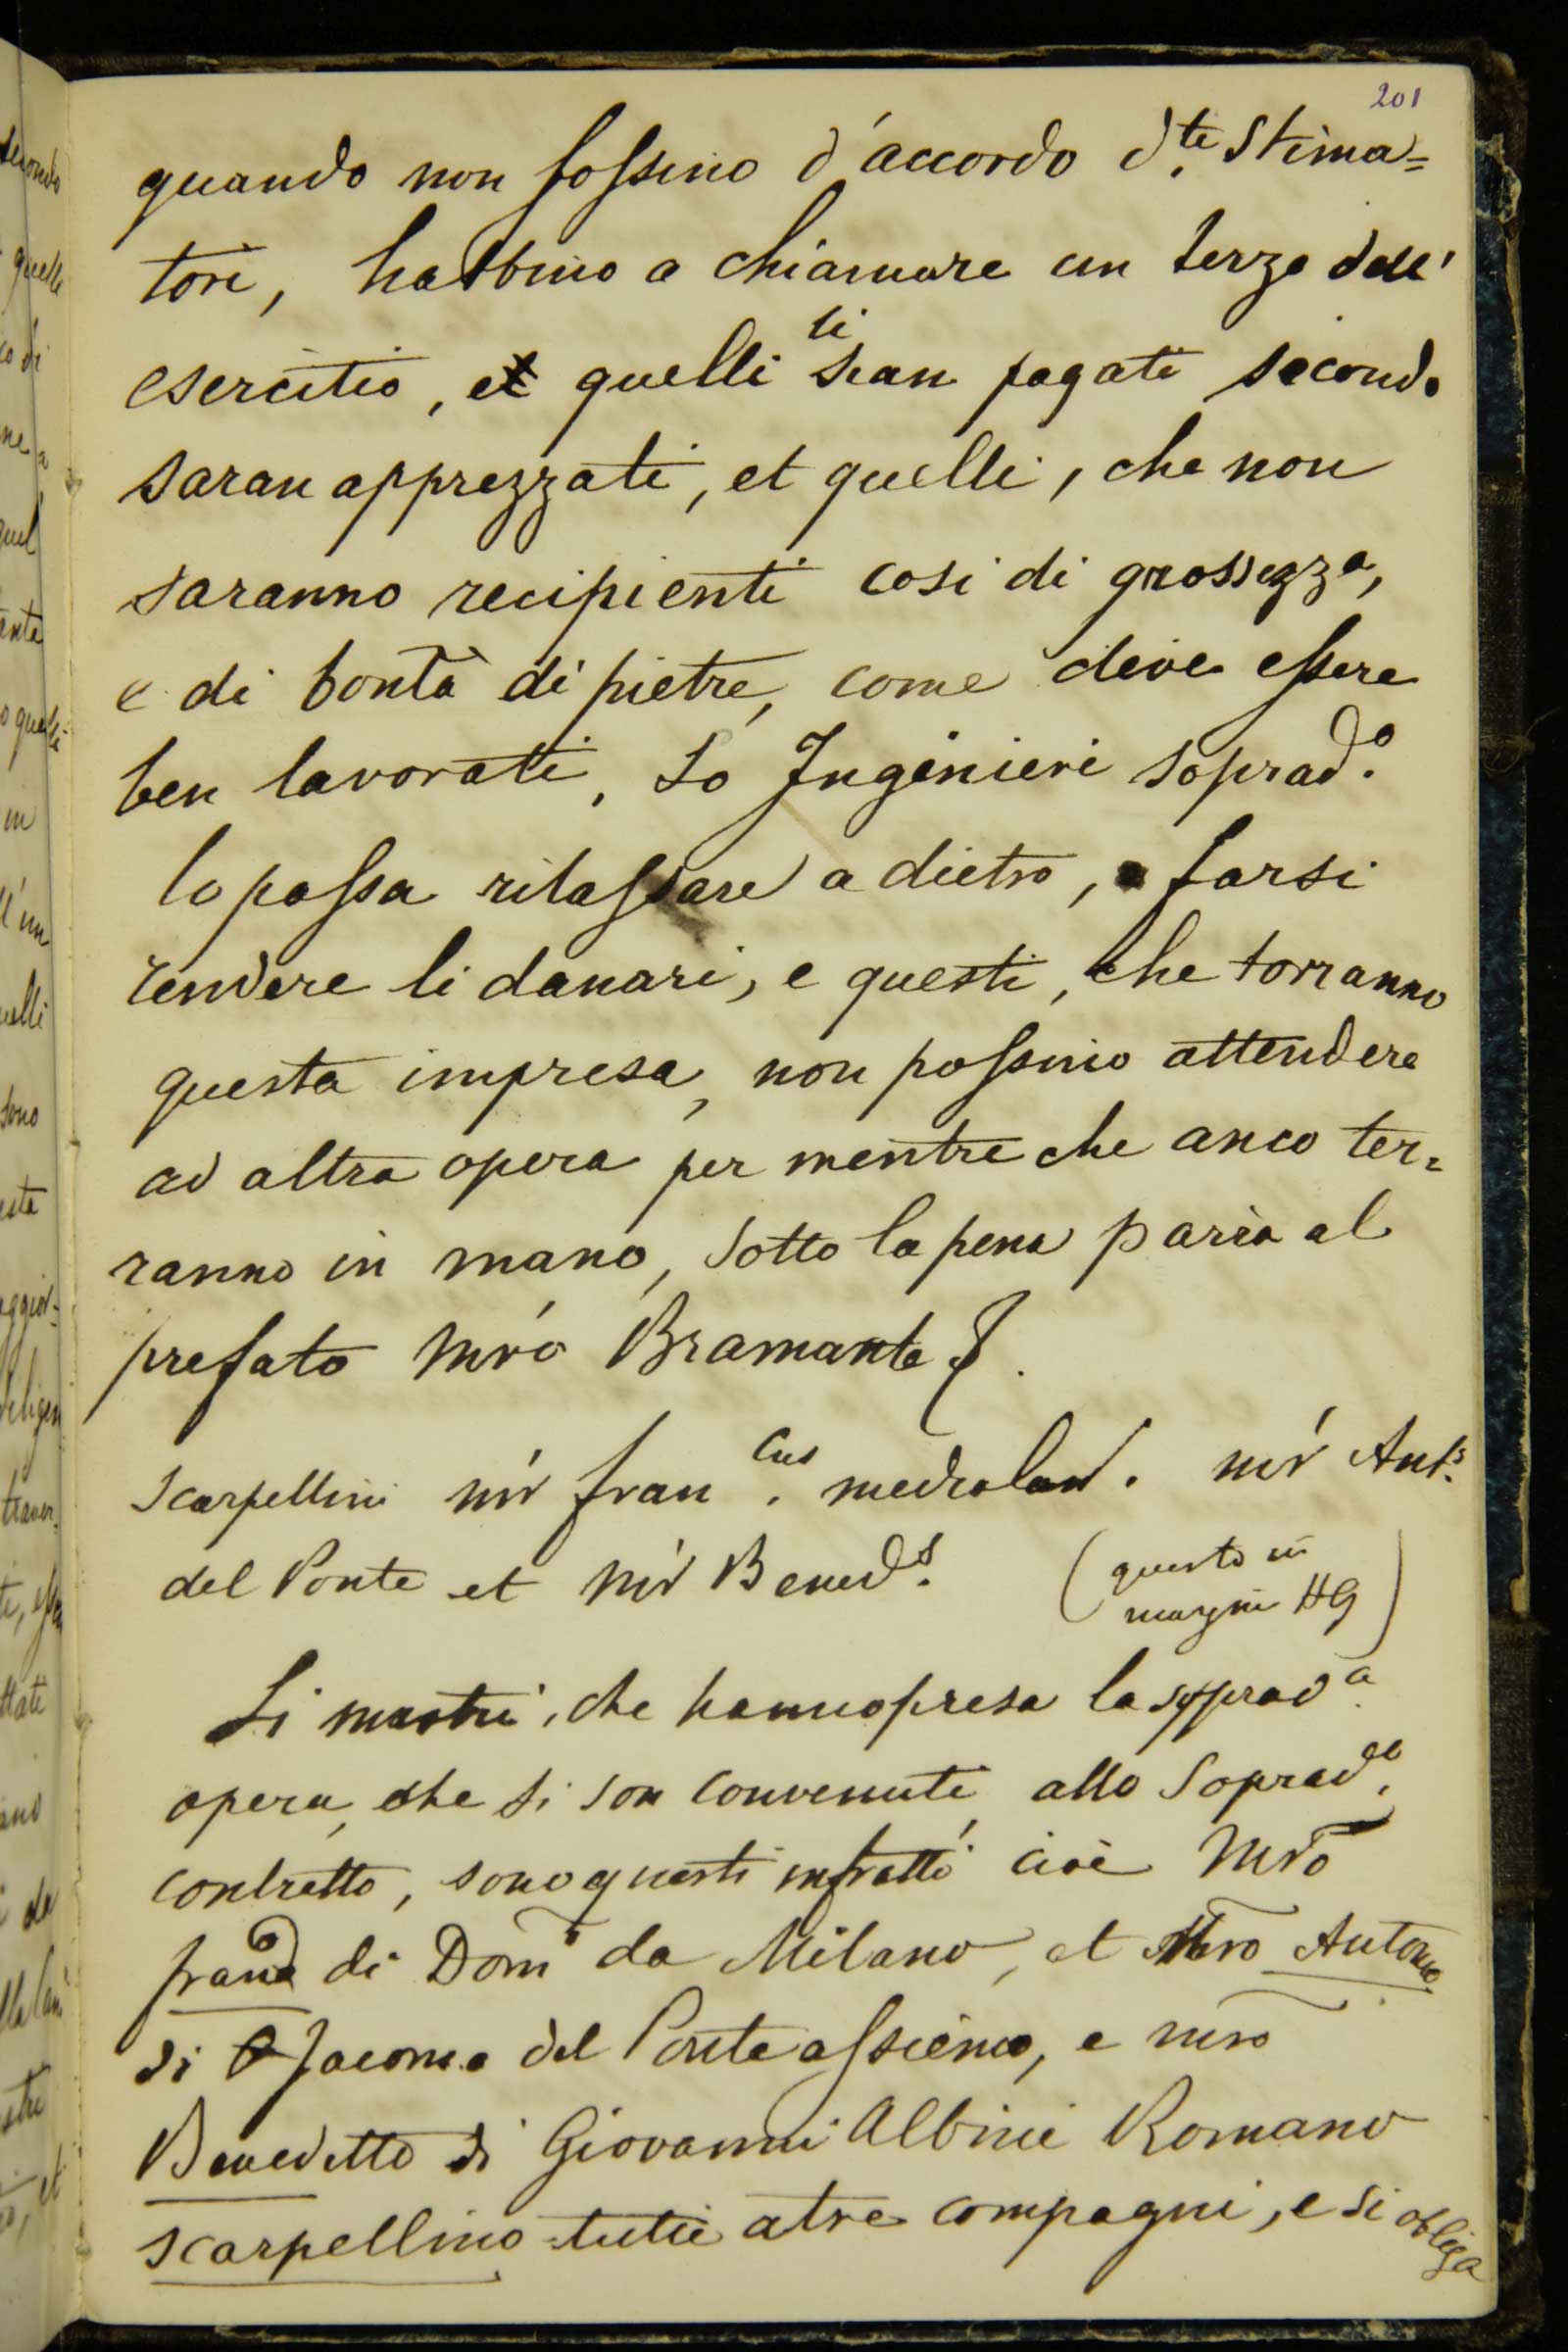 201
quando non fossino d'accordo d.te Stima=
tori, habbino a chiamare un terzo dell'
esercitio, et quelli li sian pagati secondo
saran apprezzati, et quelli, che non
saranno recipienti cosi di grossezza,
e di bontà di pietre, come deve essere
ben lavorati, Lo Ingenieri soprad.o
lo possa rilassare a dietro, e farsi
rendere li danari, e questi, che torranno
questa impresa, non possino attendere
ad altra opera per mentre che anco ter=
ranno in mano, sotto la pena paria al
prefato Mro Bramante
Scarpellini mr fran.cus mediolan. mr Ant.s
del Ponte et Mr Bened.s
(questo in
margine HG)
Li mastri, che hanno presa la soprad.a
opera, che si son convenuti allo Soprad.o
contratto, sono questi infratti cioè Mro
franco di Dom da Milano, et Mro Antonio
di Jacomo del Ponte assieme, e mro
Benedetto di Giovanni Albini Romano
scarpellino tutti a tre compagni, e si obliga